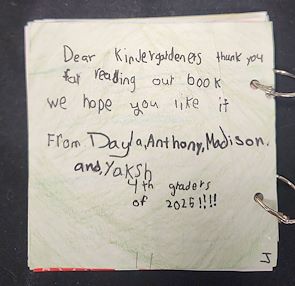 Dear Kindergardeners thank you
for reading out book
we hope you like it
From Dayla, Anthony, Madison,
and, Yaksh
4th graders
of 2025!!!!